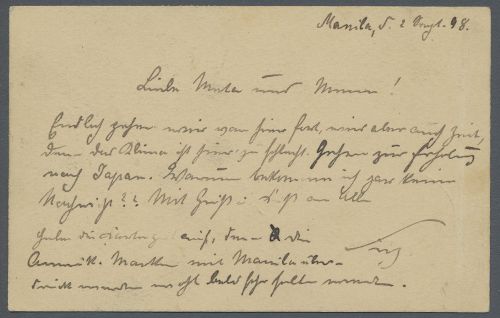 Manila, d. 2 Sept. 98.
Liebe Mata und Mama!
Endlich gehen wir von hier fort, wird aber auch Zeit,
denn das Klima ist hier zu schlecht. Gehen zur Erholung
nach Japan. Warum bekomme ich gar keine
Nachricht?? Mit Gruß u. Kuß an Alle
Hebe die Karte auf, denn die
Amerik. Marken mit Manila über-
druckt werden wohl bald sehr selten werden.